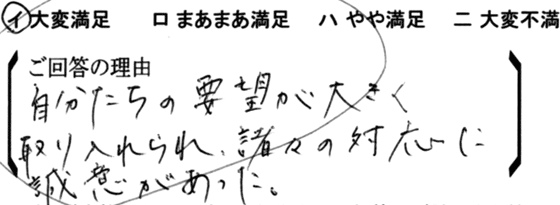 イ 大変満足 ロ まあまあ満足 ハ やや満足 ニ 大変不満
ご回答の理由
自分たちの要望が大きく
取り入れられ、諸々の対応に
誠意があった。